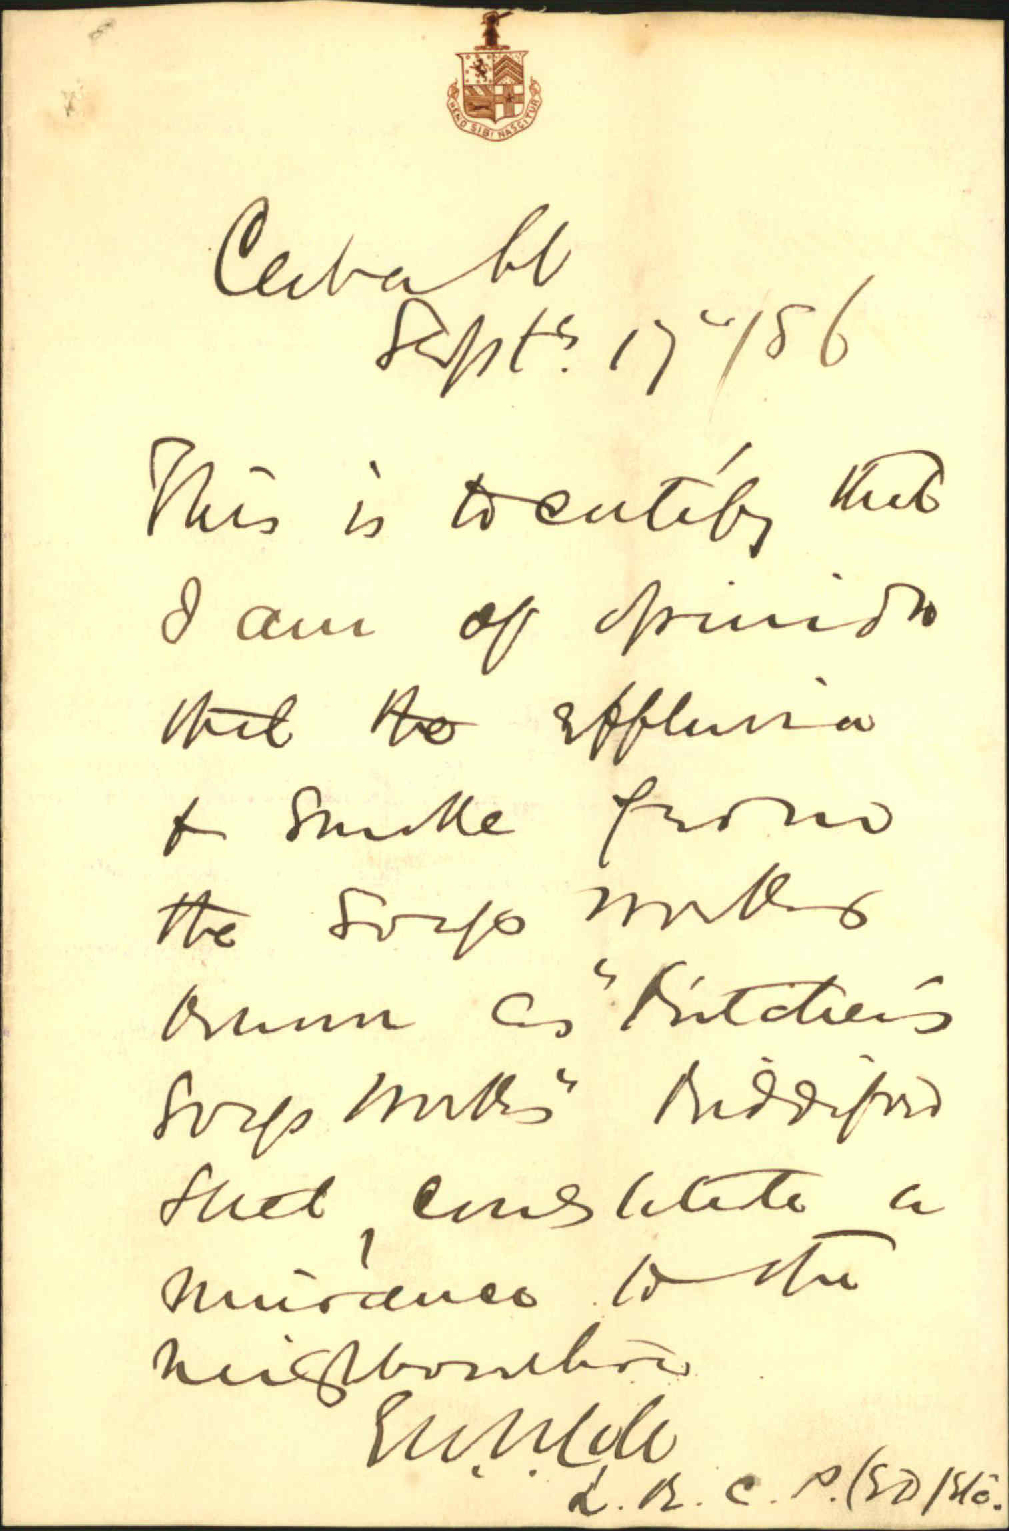 NEMO SIBI NASCITUR
Septr. 17th/86
This is to certify that
I am of opinion
that the effluvia
& smoke from
the Soap works
known as "Kitchen's
Soap Works" Riddiford
Street constitute a
nuisance to the
neighbourhood
L. R. C. P. (ED) Etc.